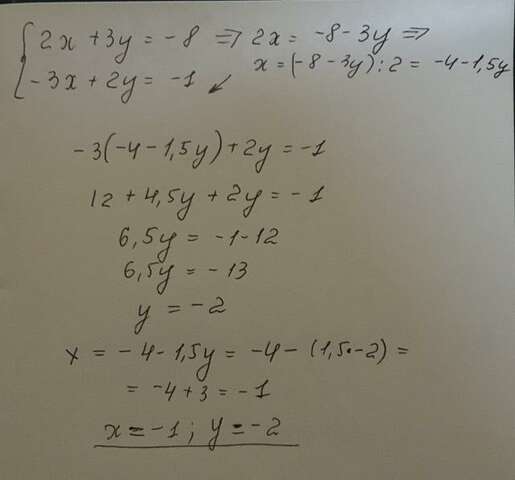 2x + 3y = -8 => 2x = -8 - 3y =>
x = (-8 - 3y) : 2 = -4 - 1,5y
-3x + 2y = -1 ↙
-3(-4 - 1,5y) + 2y = -1
12 + 4,5y + 2y = -1
6,5y = -1-12
6,5y = -13
y = -2
x = -4 - 1,5y = -4 - (1,5·-2) =
= -4 + 3 = -1
x = -1 ; y = -2